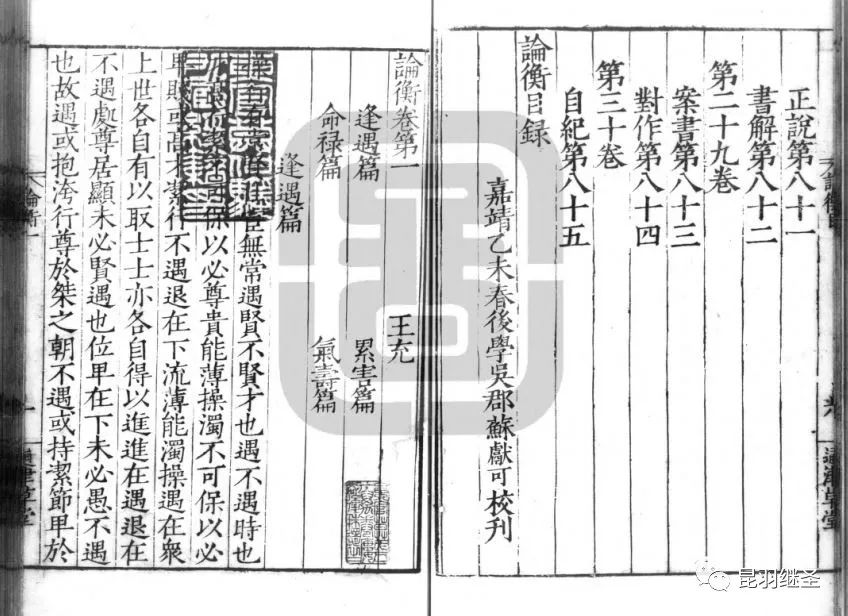 正說第八十一
書解第八十二
第二十九卷
案書第八十三
對作第八十四
第三十卷
自紀第八十五
論衡目録
嘉靖乙未春後學吳郡蘇獻可校刊
通津草堂
論衡卷第一
王充
逢遇篇 累害篇
命禄篇 氣壽篇
逢遇篇
操行有常賢仕宦無常遇賢不賢才也遇不遇時也
可保以必尊貴能薄操濁不可保以必
卑賤或高才潔行不遇退在下流薄能濁操遇在衆
上世各自有以取士士亦各自得以進進在遇退在
不遇處尊居顯未必賢遇也位卑在下未必愚不遇
也故遇或抱洿行尊於桀之朝不遇或持潔節卑於
論衡一
通津草堂
昆羽继圣